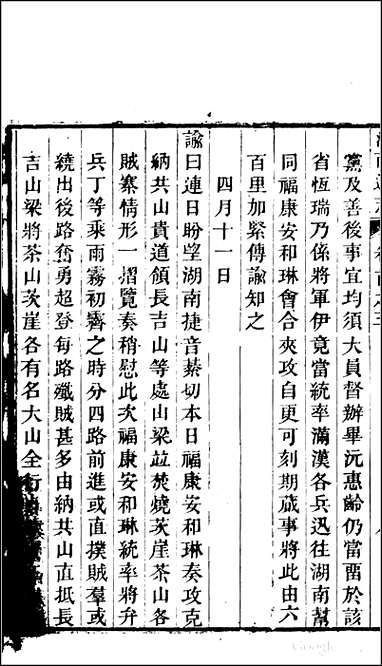 黨及善後事宜均須大員督辦畢沅惠齡仍當畱於該
省恆瑞乃係將軍伊竟當統率滿漢各兵迅往湖南幫
同福康安和琳會合夾攻自更可刻期蕆事將此由六
百里加緊傳諭知之
四月十一日
諭曰連日盼望湖南捷音綦切本日福康安和琳奏攻克
納共山貴道嶺長吉山等處山梁竝焚燒茨崖茶山各
賊寨情形一摺覽奏稍慰此次福康安和琳統率將弁
兵丁等乘雨霧初霽之時分四路前進或直撲賊羣或
繞出後路奮勇超登每路殲賊甚多由納共山直抵長
吉山梁將茶山茨崖各有名大山全行